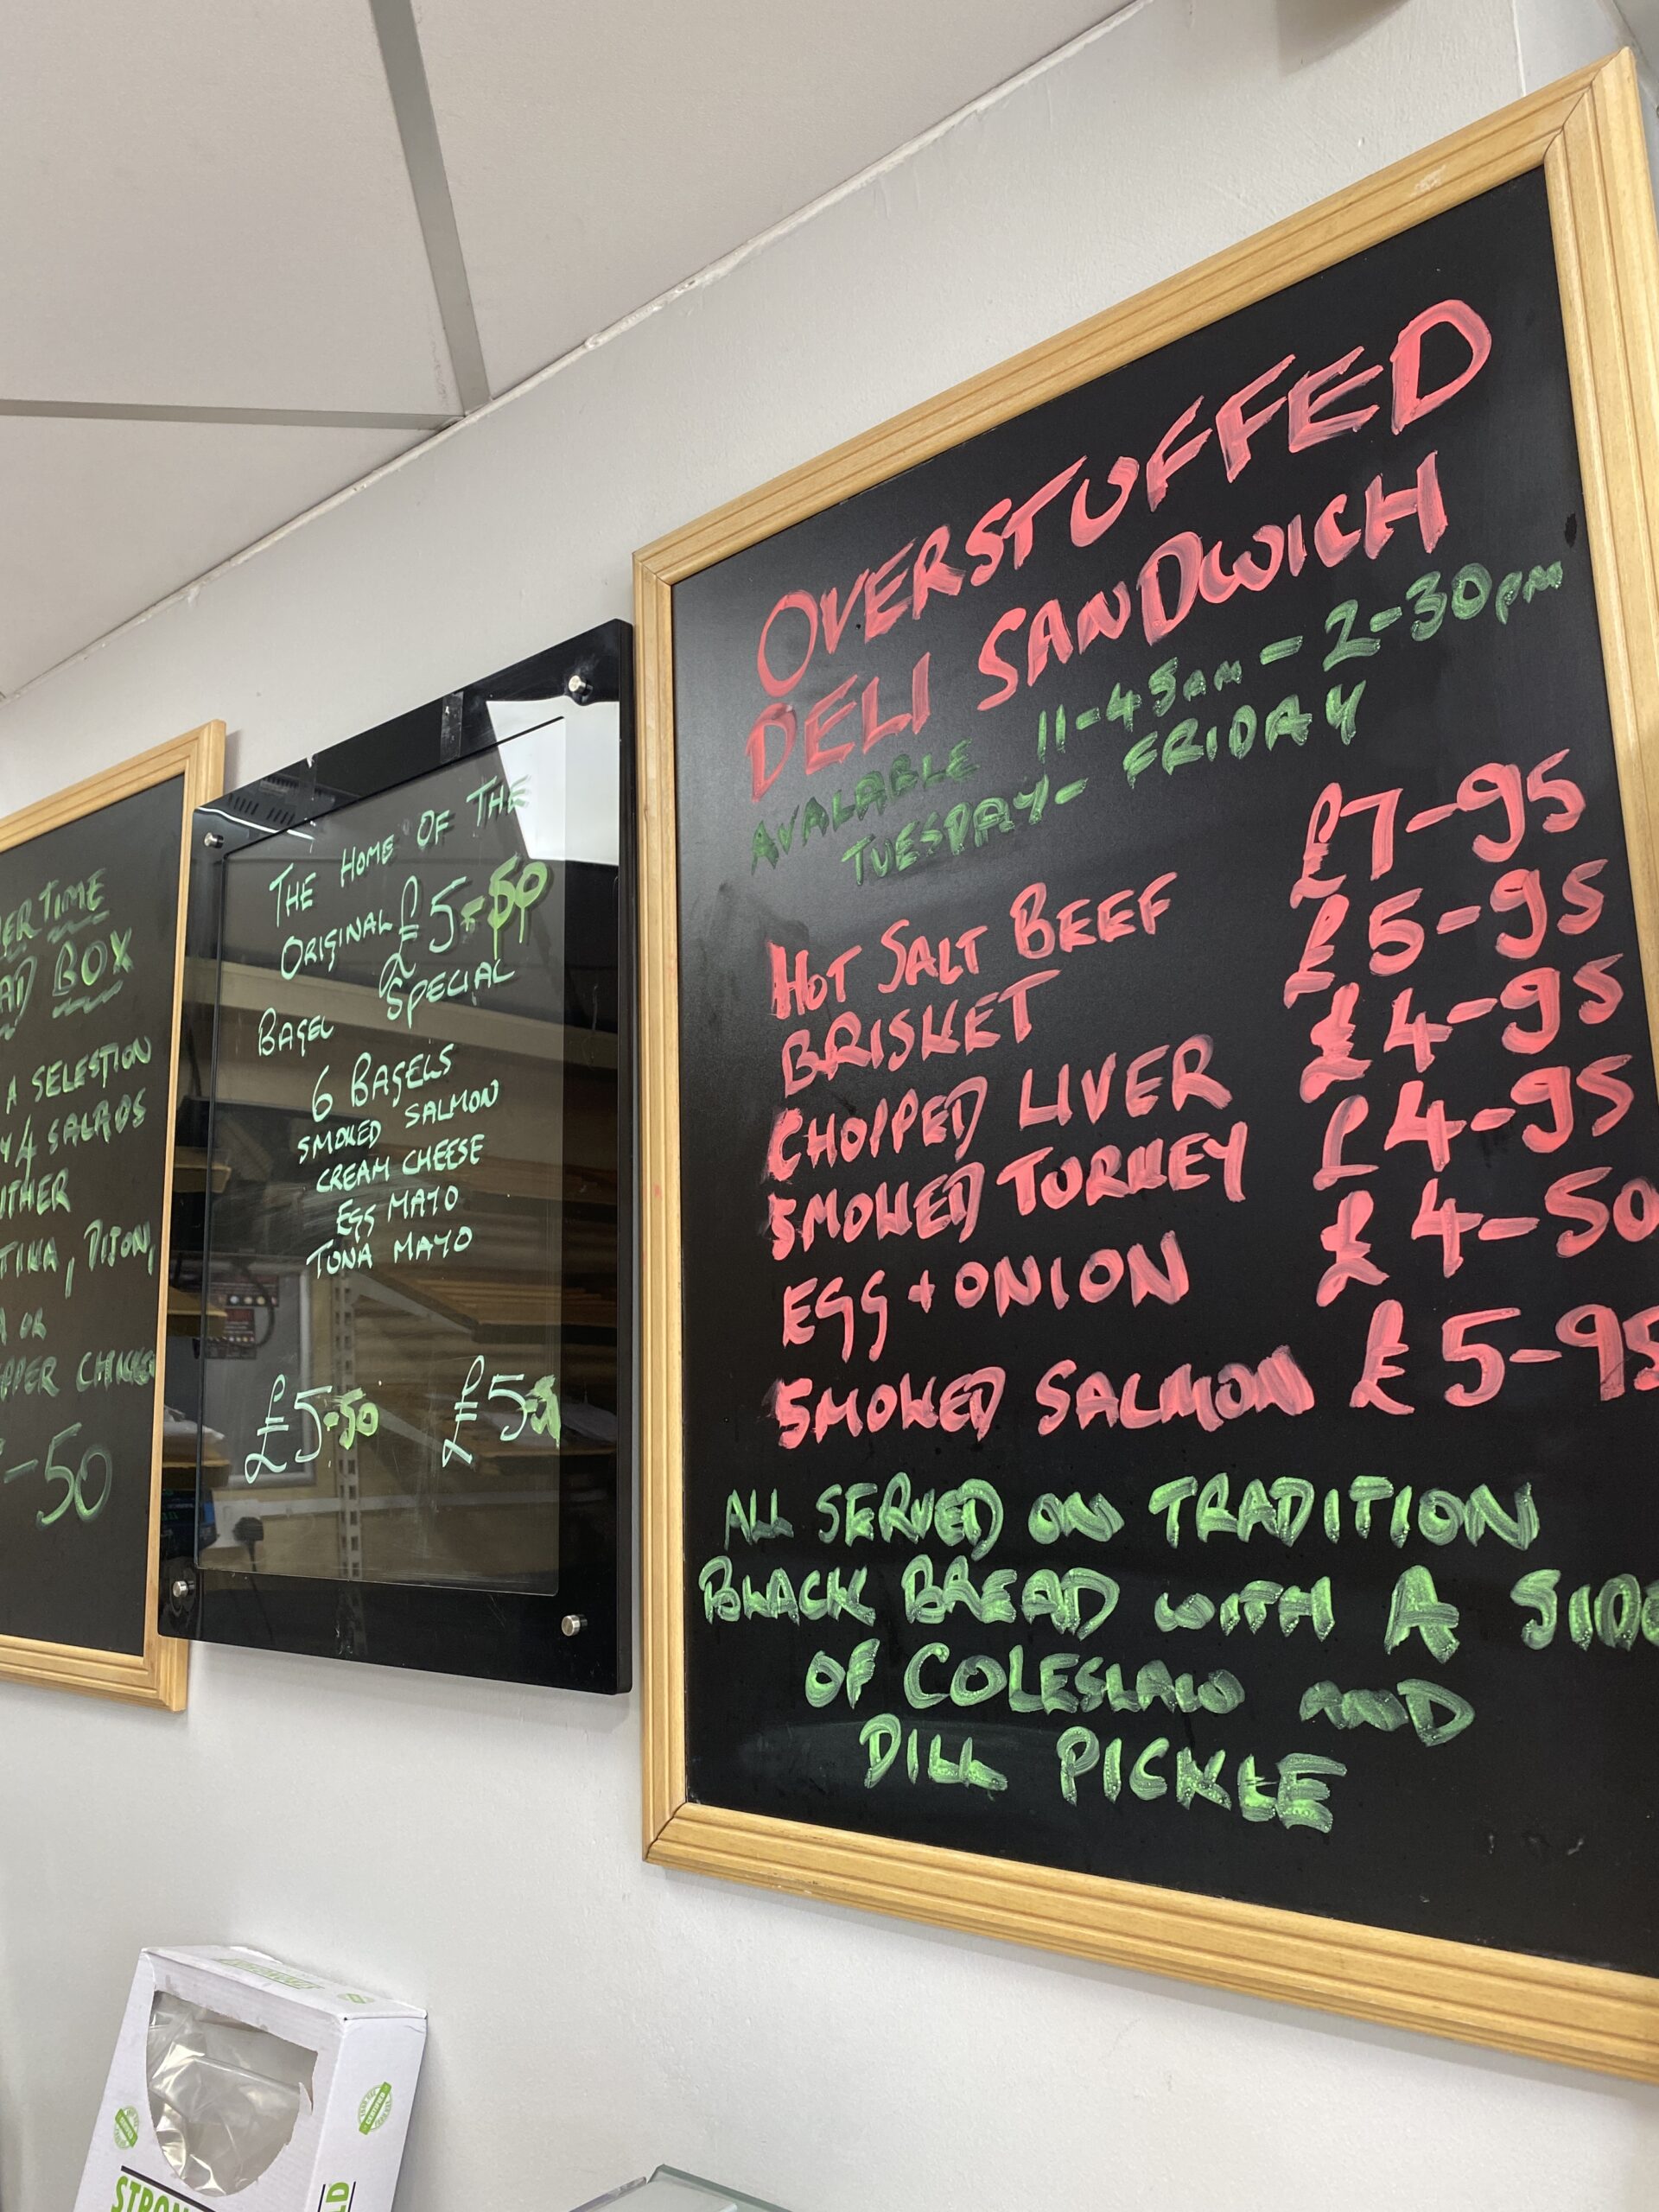 TIME
BOX
A SELESTION
4 SALADS
DIJON,
OR
-50
THE HOME OF THE
ORIGINAL £5-50
BAGEL SPECIAL
6 BAGELS
SMOKED SALMON
CREAM CHEESE
EGG MAYO
TUNA MAYO
£5-50 £5-
OVERSTUFFED
DELI SANDWICH
AVALABLE 11-45am - 2-30pm
TUESDAY- FRIDAY
HOT SALT BEEF £7-95
BRISKET £5-95
CHOPPED LIVER £4-95
SMOKED TURKEY £4-95
EGG + ONION £4-50
SMOKED SALMON £5-95
ALL SERVED ON TRADITION
BLACK BREAD WITH A SIDE
OF COLESLAW AND
DILL PICKLE